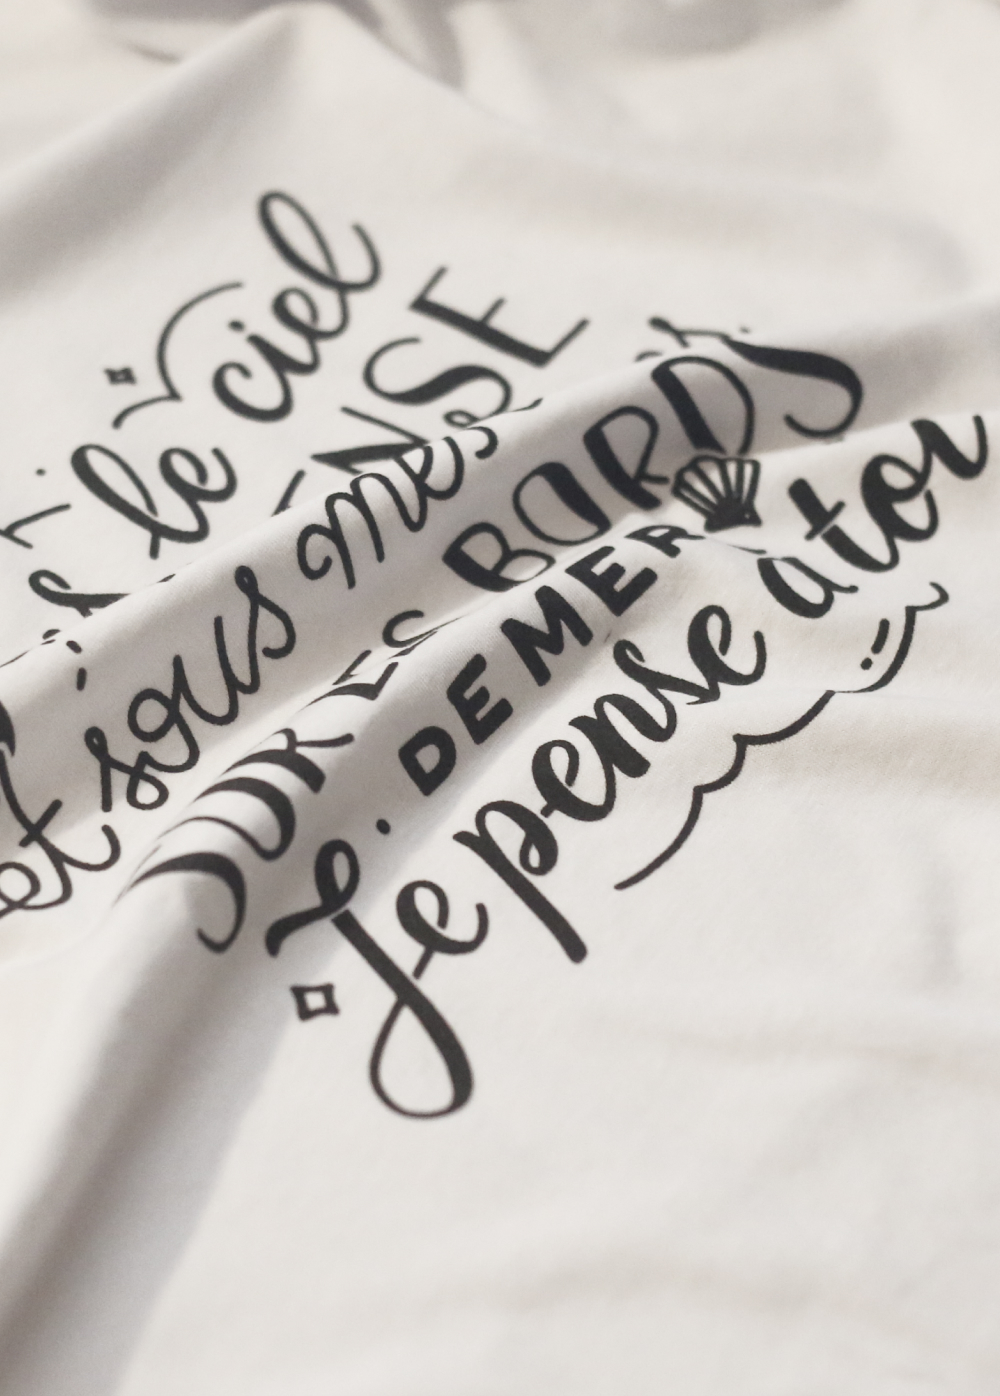 le ciel
NSE
et sous mes
SUR LES BORDS
DE MER
Je pense a toi